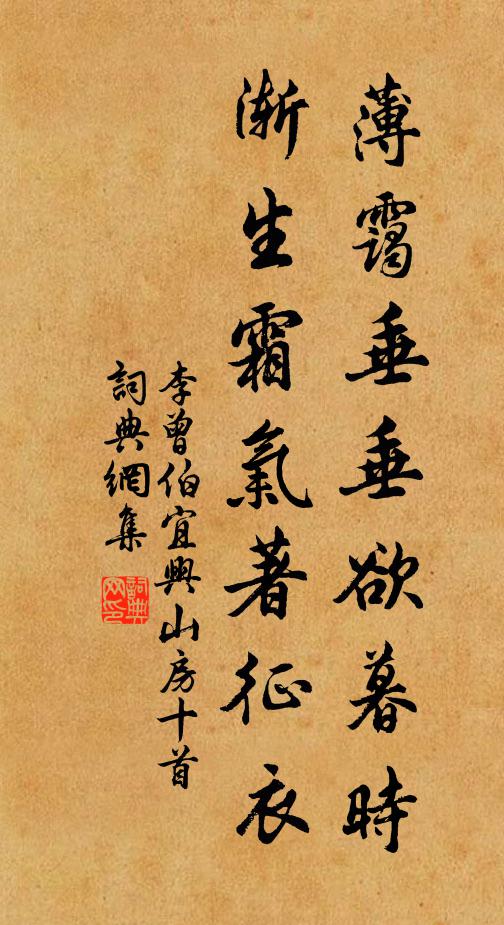 薄靄垂垂欲暮時
漸生霜氣著征衣
李曾伯宜興山房十首
詞典網集
詞典網印